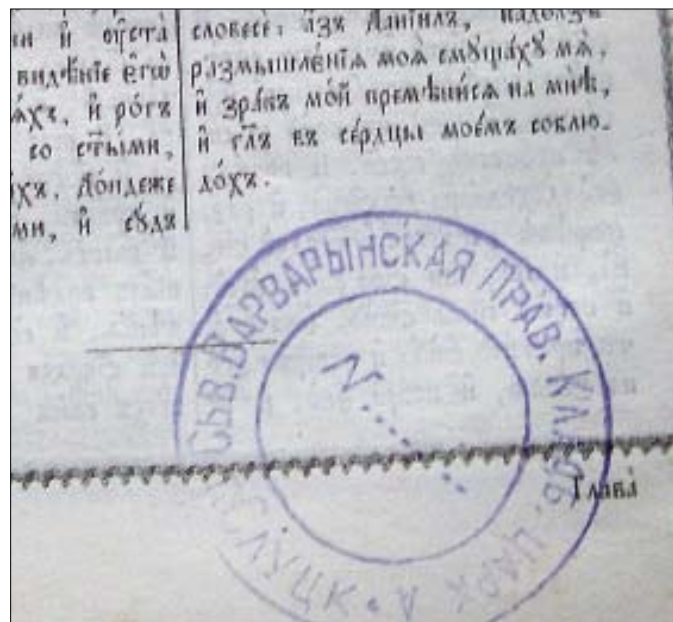 и҆ ѹ҆ста̀
видѣ́нїе є҆гѡ̀
и҆ ро́гъ
со ст҃ы́ми,
До́ндеже
и҆ сꙋ́дъ
словесѐ: а҆́зъ Данїи́лъ, надо́лзѣ
размышлє́нїѧ моѧ̑ смꙋща́хꙋ мѧ̀,
и҆ зра́къ мо́й премѣни́сѧ на мнѣ̀,
и҆ гл҃ъ въ се́рдцы мое́мъ соблю-
до́хъ.
СЬВ. ВАРВАРЫНСКАЯ ПРАВ.
СЛУЦК
N......
Глава̀